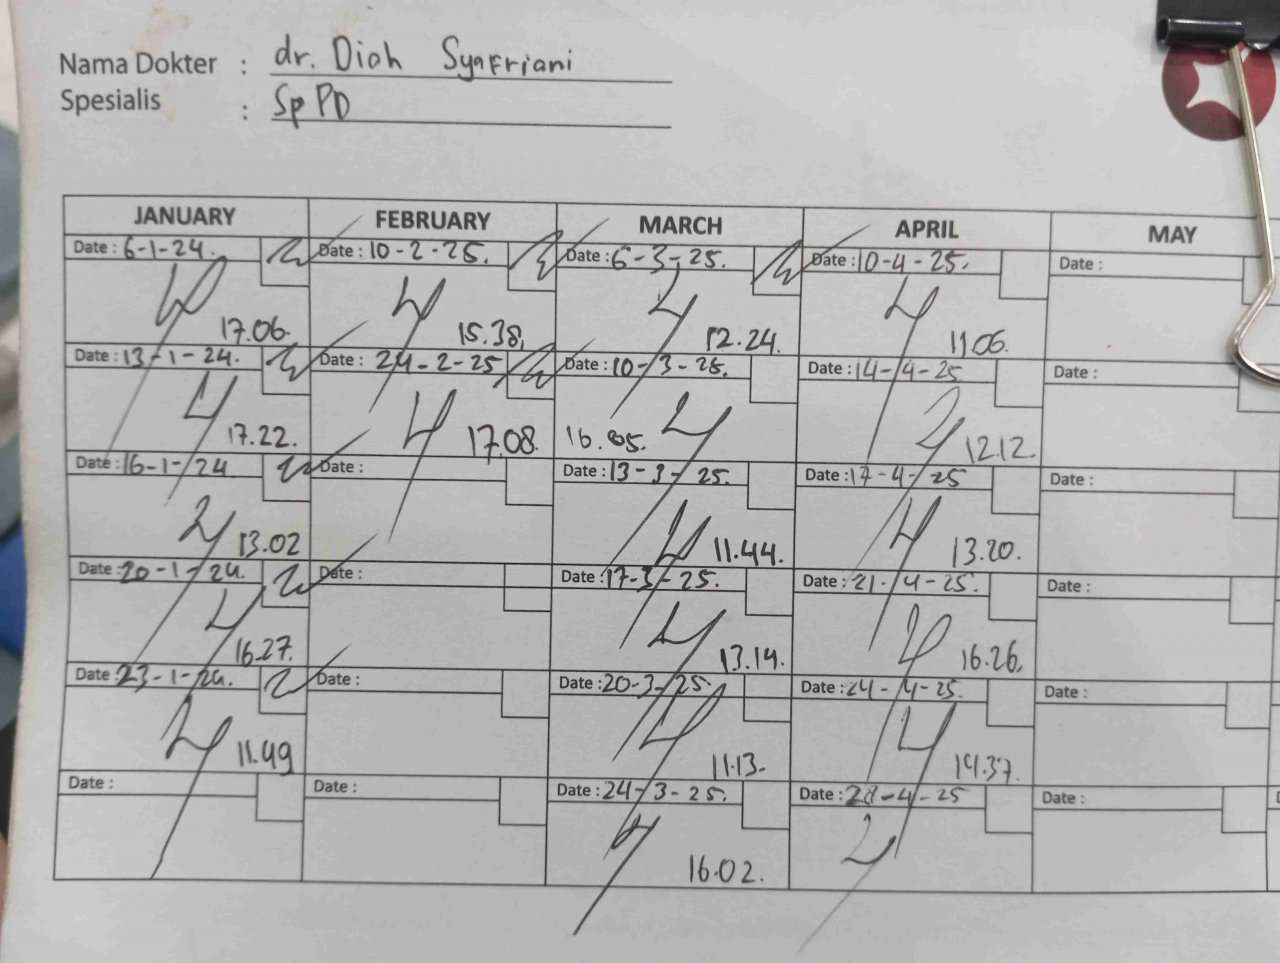 Nama Dokter : dr. Diah Syafriani
Spesialis : SpPD
JANUARY FEBRUARY MARCH APRIL MAY
Date : 6-1-24. Date : 10-2-25. Date : 6-3-25. Date : 10-4-25. Date :
17.06. 15.38. 12.24. 11.06.
Date : 13-1-24. Date : 24-2-25 Date : 10-3-25. Date : 14-4-25 Date :
17.22. 17.08. 16.05. 12.12.
Date : 16-1-24 Date : Date : 13-3-25. Date : 17-4-25 Date :
13.02 11.44. 13.20.
Date : 20-1-24. Date : Date : 17-3-25. Date : 21-4-25. Date :
16.27. 13.14. 16.26.
Date : 23-1-24. Date : Date : 20-3-25. Date : 24-4-25. Date :
11.49 11.13. 14.37.
Date : Date : Date : 24-3-25. Date : 28-4-25 Date :
16.02.